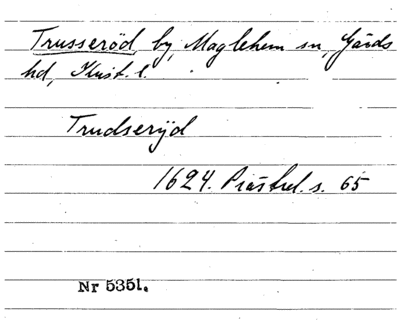 Trusseröd by, Maglehem sn, Gärds
hd, Krist. l.
Trudserÿd
1624. Prästrel. s. 65
Nr 5351.